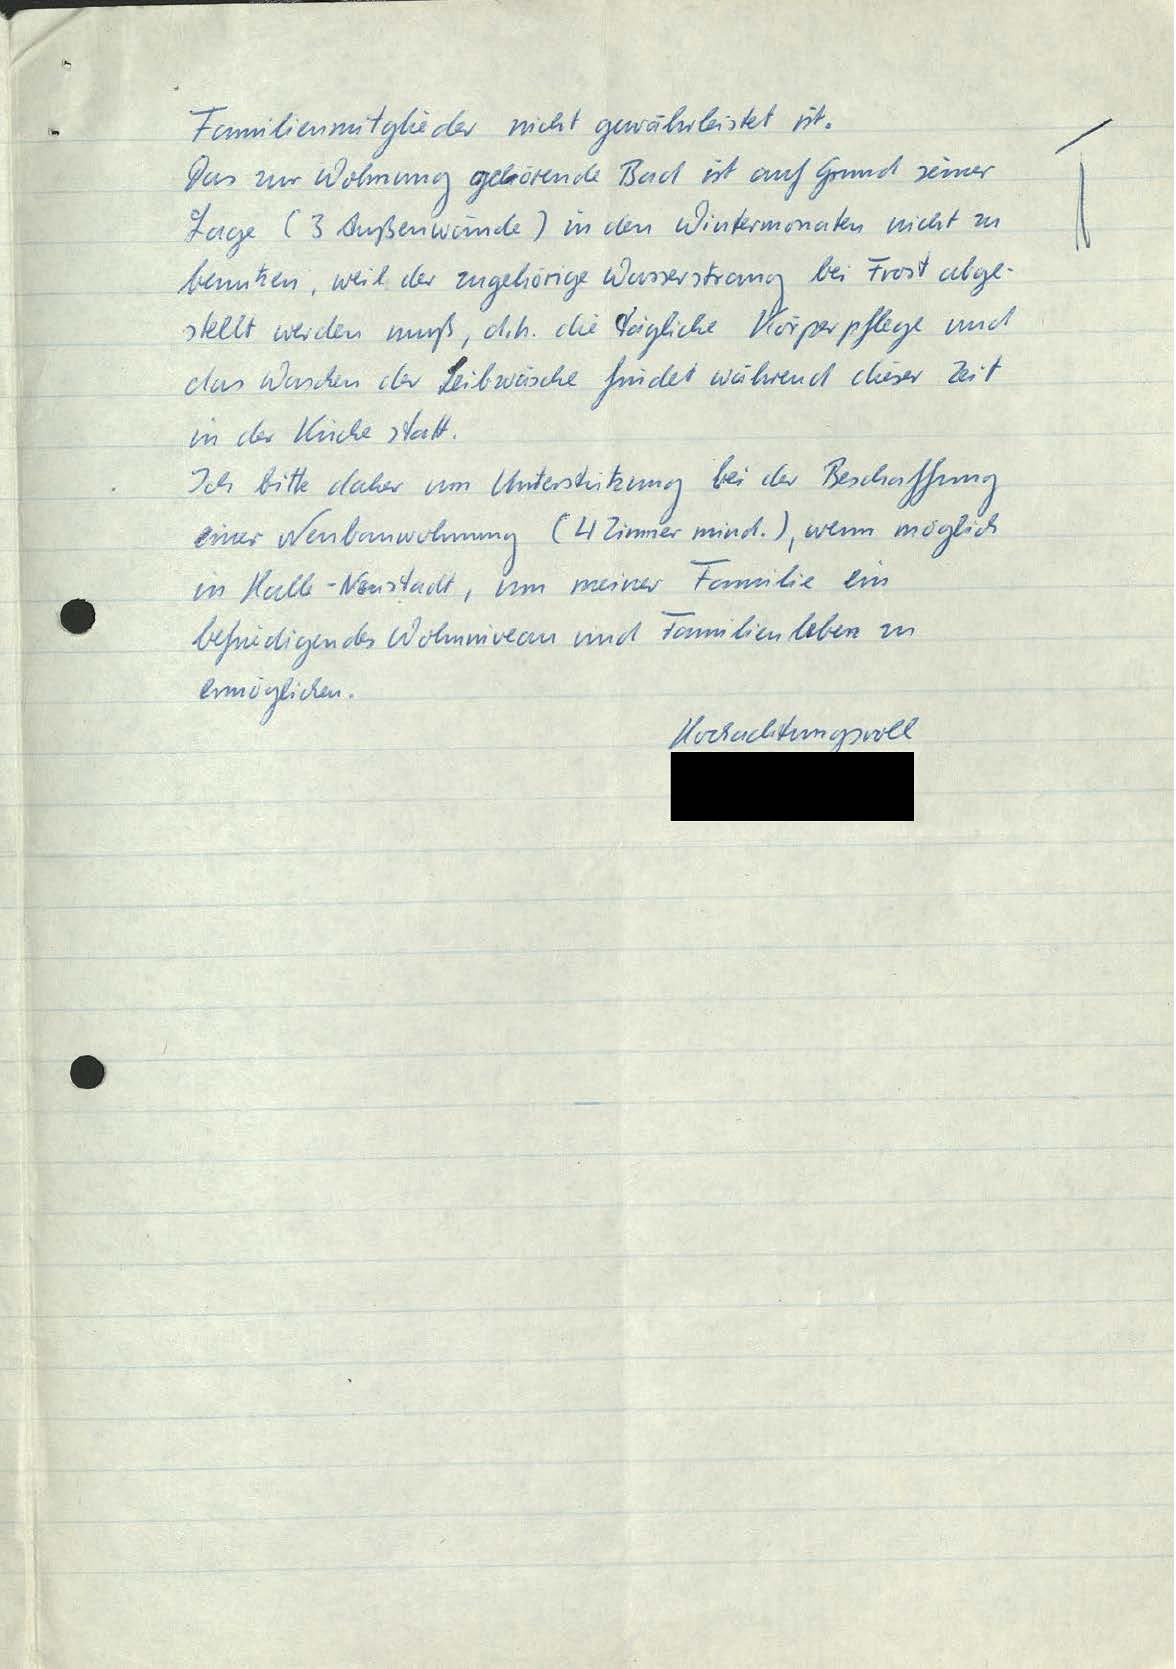 Familienmitglieder nicht gewährleistet ist.
Das zur Wohnung gehörende Bad ist auf Grund seiner
Lage (3 Außenwände) in den Wintermonaten nicht zu
benutzen, weil der zugehörige Wasserstrang bei Frost abge-
stellt werden muß, d.h. die tägliche Körperpflege und
das Waschen der Leibwäsche findet während dieser Zeit
in der Küche statt.
Ich bitte daher um Unterstützung bei der Beschaffung
einer Neubauwohnung (4 Zimmer mind.), wenn möglich
in Halle-Neustadt, um meiner Familie ein
befriedigendes Wohnniveau und Familienleben zu
ermöglichen.
Hochachtungsvoll